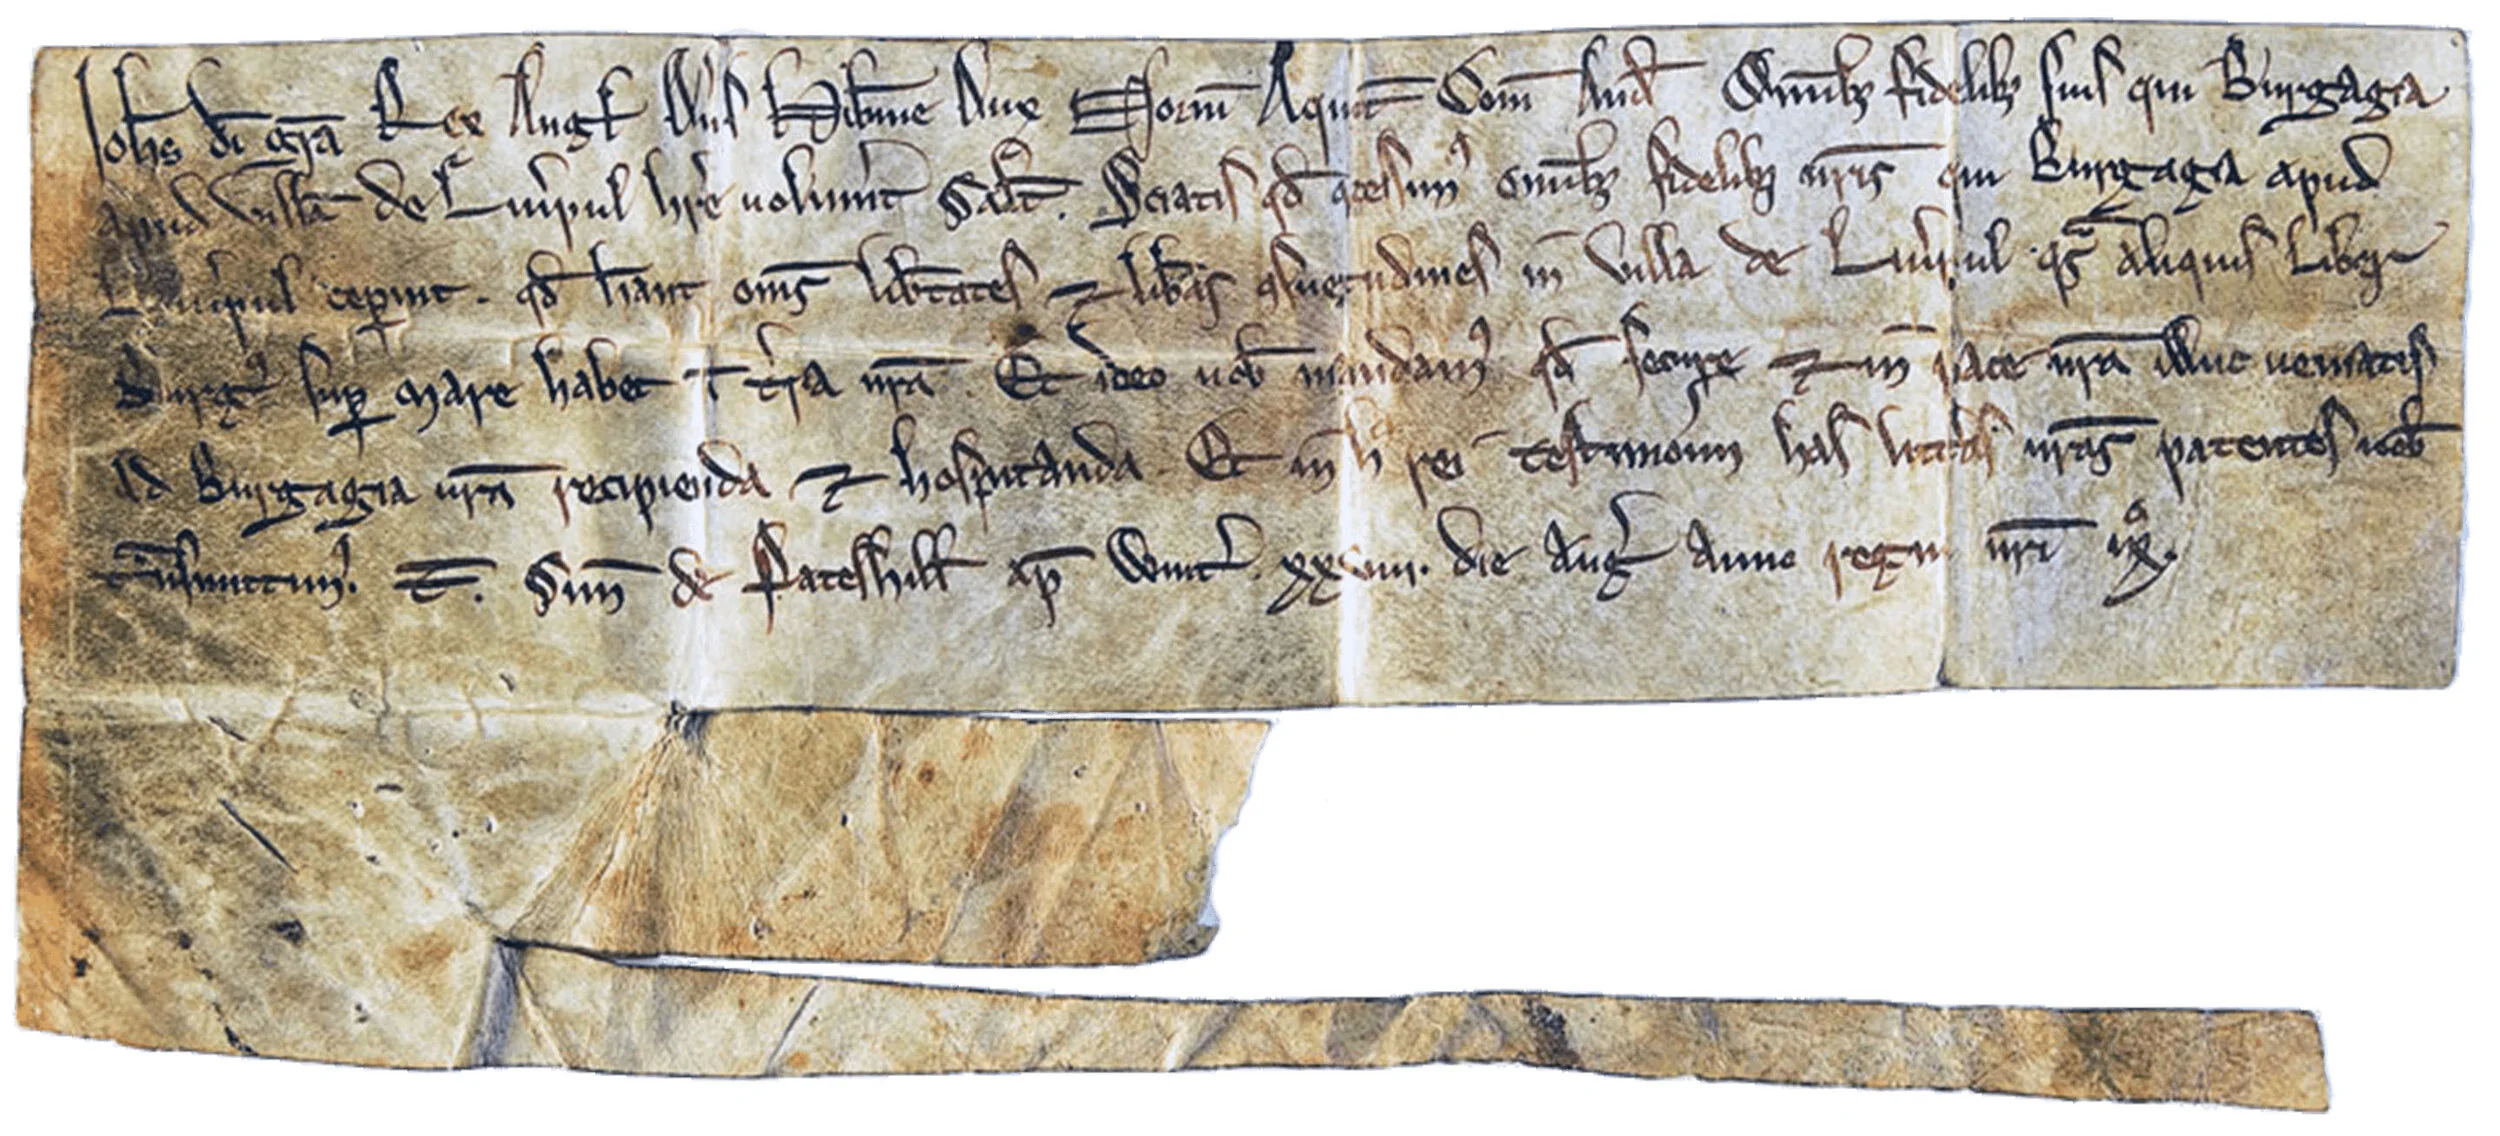 Joh̄s dī gr̄a Rex Angl̄ Dn̄s Hib̄nie Dux Norm̄ Aquit̄ Com̄ And̄ Omīb; fidelib; suis qui Burgagia
apud villā de Liũpul hr̄e voluerīt Salt̄. Sciatis qd̄ ꝯcessim᾽ omīb; fidelib; nr̄is qui Burgagia apud
Liũpul cep̄int. qd̄ hēant om̄s lib̄tates ⁊ lib̄as ꝯsuetudines in villa de Liũpul qᵃs aliquis liber
Burg᾽ sup̄ mare habet ī t̄ra nr̄a. Et ideo vob̄ mandam᾽ qd̄ secure ⁊ in pace nr̄a illuc veniatis
ad Burgagia nr̄a recipienda ⁊ hospitanda. Et in hᵘ rei testimoīum has litt̄as nr̄as patentes vob̄
tᵃnsmittim᾽. T̄. Sim̄ de Pateshill̄ ap̄ Wint̄. xxviii. die Aug̃ Anno regni nr̄i ixº.